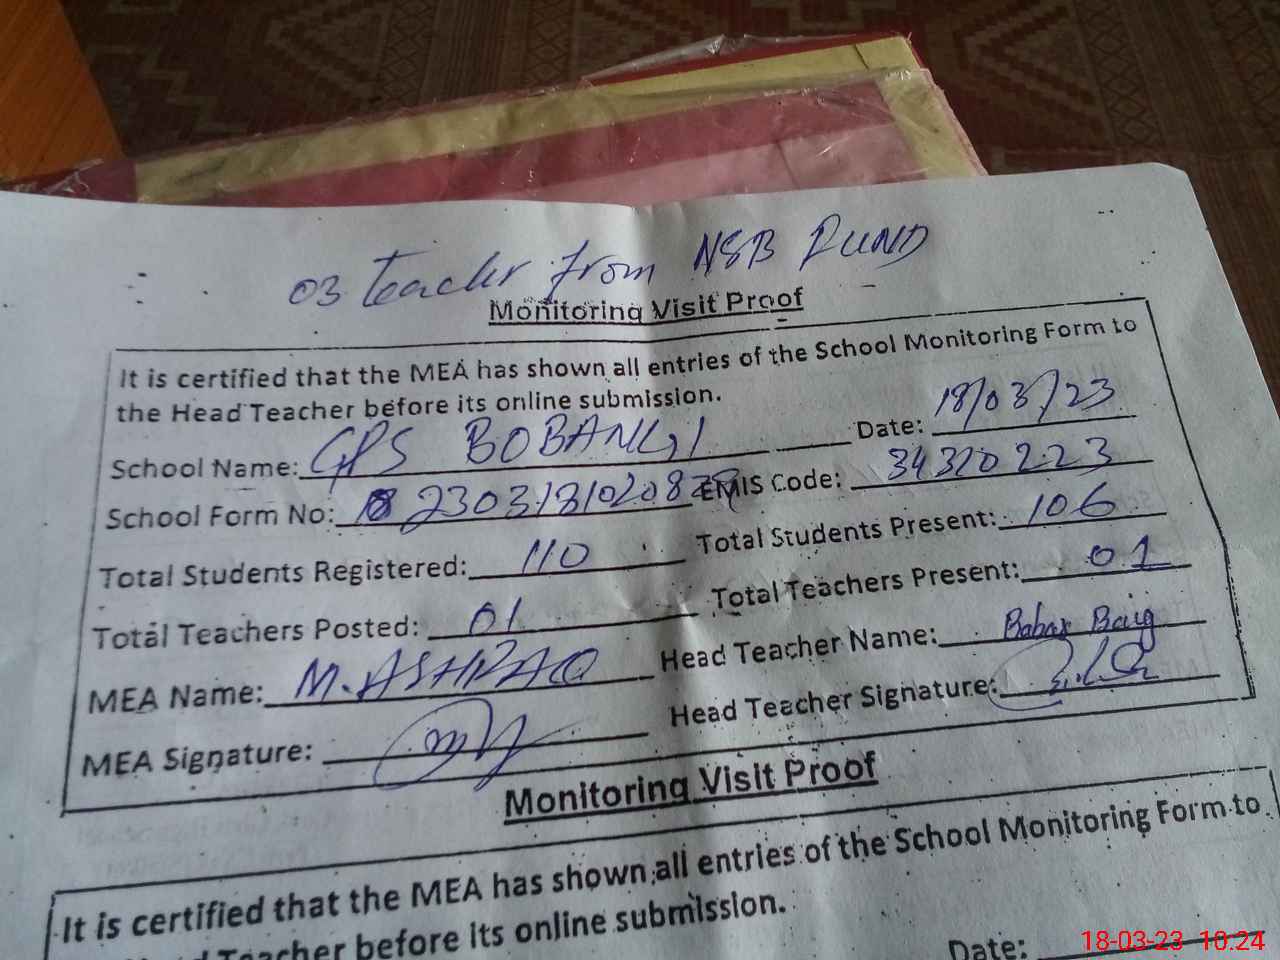 03 Teacher from NSB FUND
Monitoring Visit Proof
It is certified that the MEA has shown all entries of the School Monitoring Form to
the Head Teacher before its online submission.
School Name: GPS BOBANGI Date: 18/03/23
School Form No: EMIS Code: 34320223
Total Students Registered: 110 Total Students Present: 106
Total Teachers Posted: 01 Total Teachers Present: 01
MEA Name: M. ASHRAQ Head Teacher Name: Babar Baig
MEA Signature: Head Teacher Signature:
Monitoring Visit Proof
It is certified that the MEA has shown all entries of the School Monitoring Form to
Head Teacher before its online submission.
Date:
18-03-23 10:24